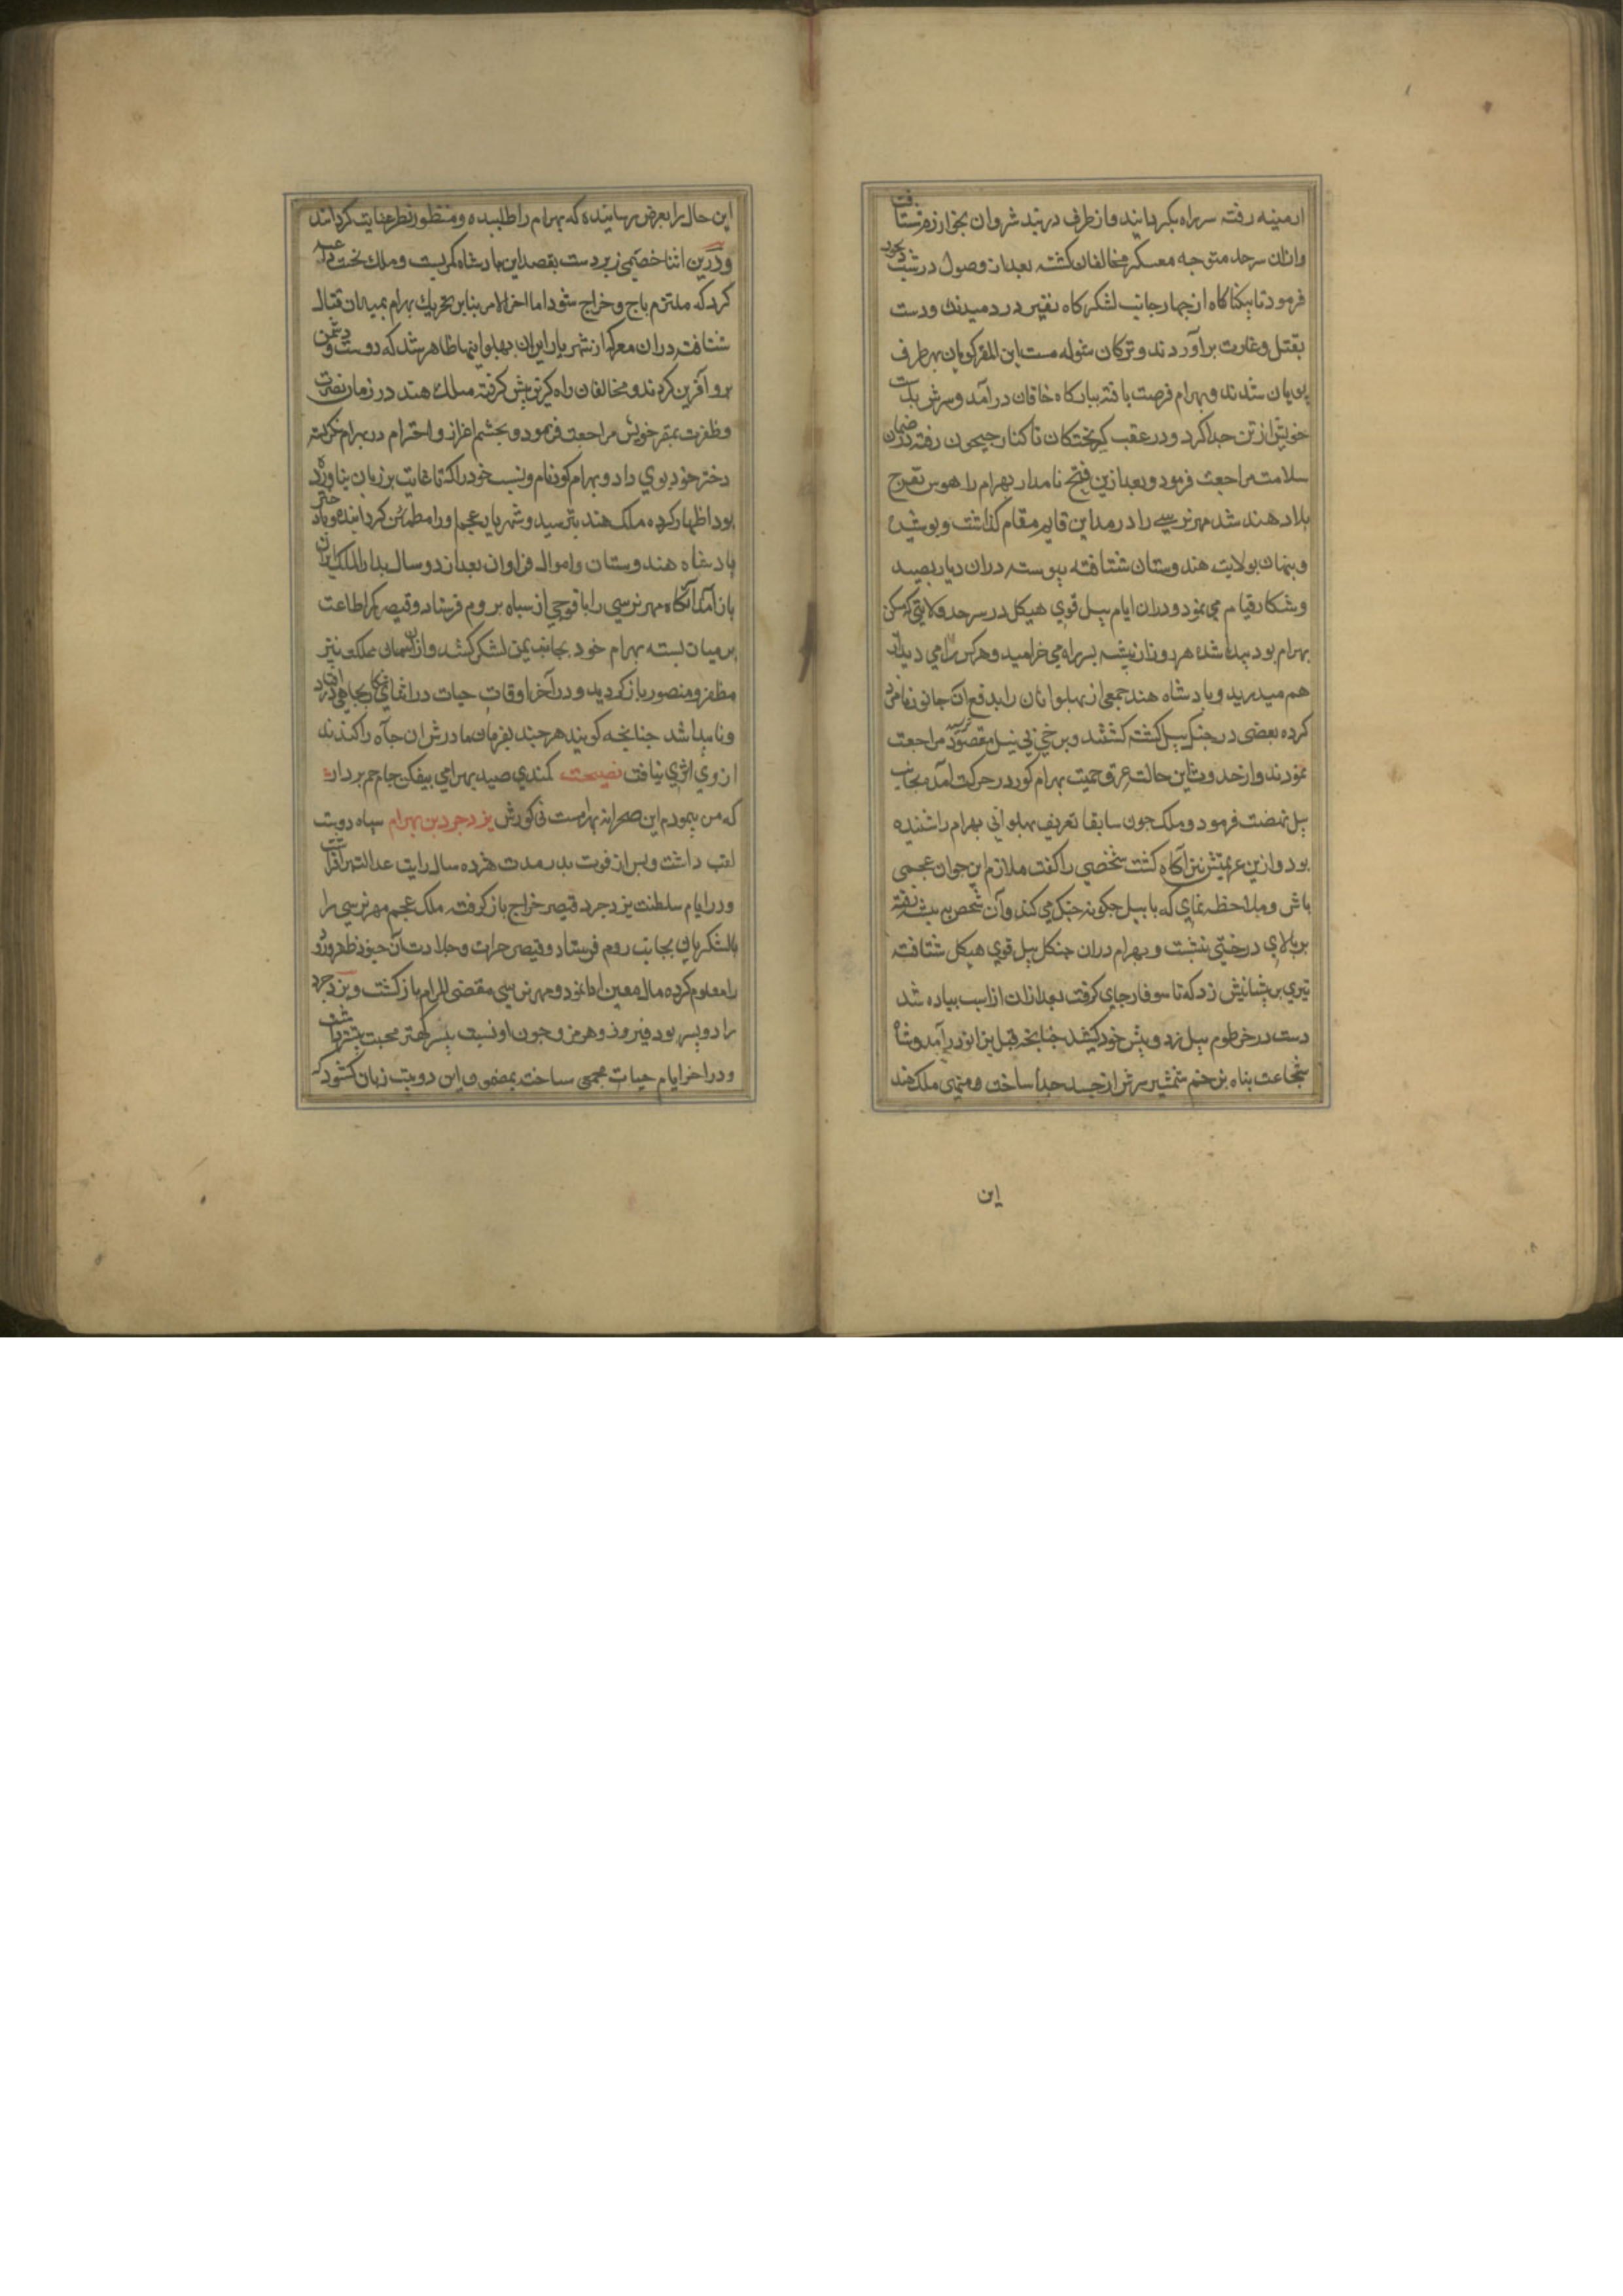 ارمینه رفته سر راه بگردانیدند و از طرف دربند شروان بخوارزم شتافت
و ازان سرحد متوجه معسکر مخالفان کشته بعد از وصول در شب بخود
فرمود تا بیکناکاه از چهار جانب لشکرکاه نفیر در دمیدند و دست
بقتل و غارت برآوردند و ترکان این المفر کویان بهر طرف
پویان شدند و بهرام فرصت یافته ببارکاه خاقان درآمد و سرش بدست
خویش از تن جدا کرد و در عقب کریختکان تا کنار جیحون رفته در ضمان
سلامت مراجعت فرمود و بعد ازین فتح نامدار بهرام را هوس تفرج
بلاد هند شد مهرنرسی را در مداین قایم مقام کذاشت و پوشیده
و پنهان بولایت هندوستان شتافته پیوسته دران دیار بصید
و شکار قیام می نمود و دران ایام پیل قوی هیکل در سرحد ولایتی که مسکن
بهرام بود پیدا شده هر روز از بیشه بسر راه می خرامید و هرکس را می دید از
هم میدرید و پادشاه هند جمعی از پهلوانان را بدفع آن جانور نامزد
کرده بعضی در جنک پیل کشته کشتند و برخی بی نیل مقصود مراجعت
نمودند و از حدوث این حالت عرق حمیت بهرام کور در حرکت آمد بجانب
پیل نهضت فرمود و ملک چون سابقا تعریف پهلوانی بهرام را شنیده
بود و ازین عزیمتش نیز آکاه کشت شخصی را کفت ملازم این جوان عجمی
باش و ملاحظه نمای که با پیل چکونه جنک می کند و آن شخص به بیشه رفته
بر بالای درختی بنشست و بهرام دران جنکل پیل قوی هیکل شتافته
تیری بر پیشانیش زد که تا سوفار جای کرفت بعد ازان از اسب پیاده شد
دست در خرطوم پیل زد و پیش خود کشید چنانچه فیل بزانو درآمد و شاه
شجاعت پناه بزخم شمشیر سرش از جسد جدا ساخت و منهی ملک هند
این
این حال را بعرض رسانیده که بهرام را طلبیده و منظور نظر عنایت کردانید
و درین اثنا خصمی زبردست بقصد این پادشاه کمر بست و ملک
کرد که ملتزم باج و خراج شود اما اخر الامر بنابر تحریک بهرام بمیدان قتال
شتافت و دران معرکه از شهریار ایران پهلوانیها ظاهر شد که دوست و دشمن
برو آفرین کردند و مخالفان راه کریز پیش کرفته ملک هند در زمان نصرت
و ظفرت بمقر خویش مراجعت فرمود و بچشم اعزاز و احترام در بهرام نکریسته
دختر خود بوی داد و بهرام کور نام و نسب خود را که تا غایت بر زبان نیاورده
بود اظهار کرده ملک هند بترسید و شهریار عجم او را مطمئن کردانیده و با دختر
پادشاه هندوستان و اموال فراوان بعد از دو سال بدار الملک ایران
باز آمد آنکاه مهرنرسی را با فوجی از سپاه بروم فرستاد و قیصر کمر اطاعت
بر میان بسته بهرام خود بجانب یمن لشکر کشید و ازان مملکت نیز
مظفر و منصور باز کردید و در آخر اوقات حیات در اثنای شکار بچاهی در افتاد
و ناپیدا شد چنانچه کویند هر چند بفرمان مادرش ان چاه را کندند
از وی اثری نیافت نصیحت کمندی صید بهرامی بیفکن جام جم بردار
که من پیمودم این صحرا نه بهرامست نی کورش یزدجرد بن بهرام سپاه دوست
لقب داشت و پس از فوت پدر مدت هژده سال رایت عدالت برافراشت
و در ایام سلطنت یزدجرد قیصر خراج باز کرفت ملک عجم مهرنرسی را
با لشکر بجانب روم فرستاد و قیصر جرات و جلادت آن جنود ظفر ورود
را معلوم کرده مال معین ادا نمود و مهرنرسی مقضی المرام باز کشت و یزدجرد
را دو پسر بود فیروز و هرمز و چون او نسبت بپسر کهتر محبت بیشتر داشت
و در اخر ایام حیات مجمعی ساخت بمضمون این دو بیت زبان کشود که